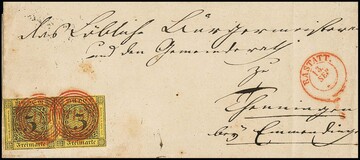 das Löbliche Bürgermeisteramt
und den Gemeinderath
zu
Thenningen
bey Emmendingen
RASTATT.
15
SEP
3 3
Freimarke Freimarke